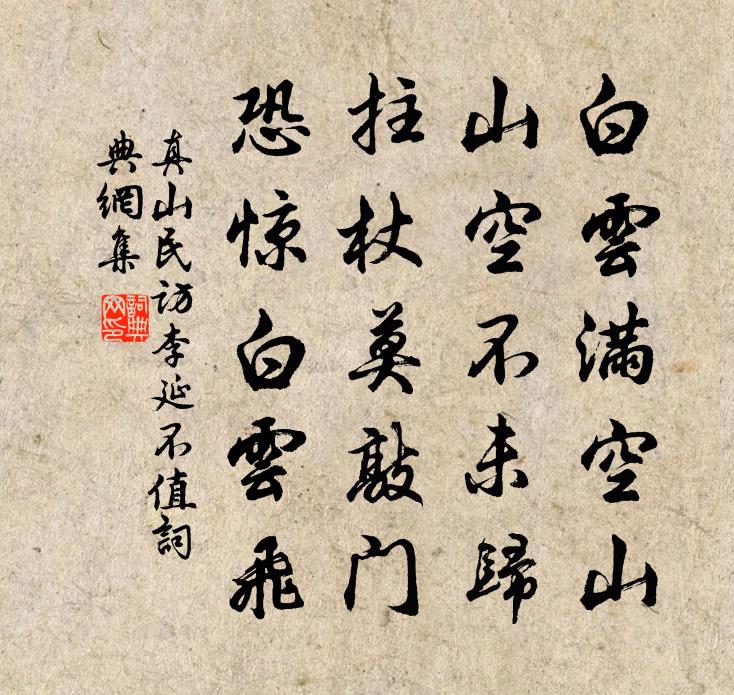 白雲滿空山
山空不未歸
拄杖莫敲门
恐惊白雲飛
真山民访李延不值詞
典網集
詞典网印